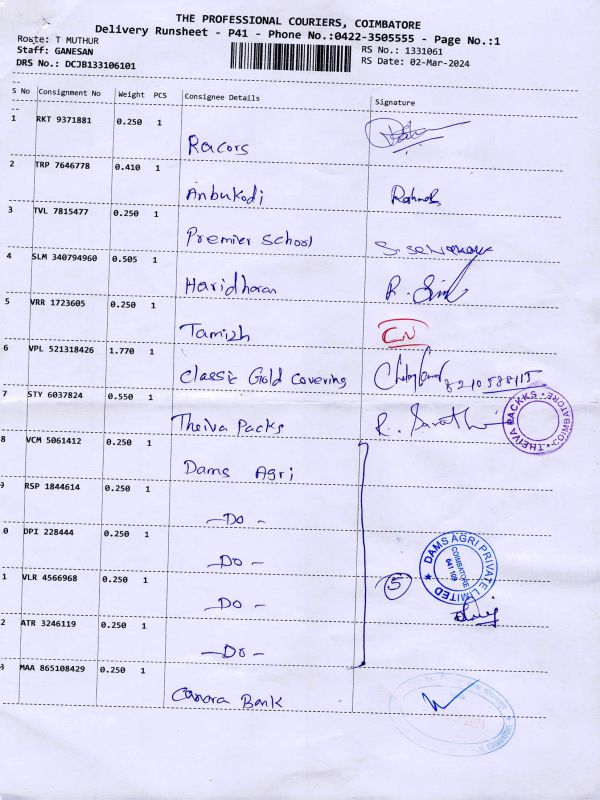 THE PROFESSIONAL COURIERS, COIMBATORE
Delivery Runsheet - P41 - Phone No.:0422-3505555 - Page No.:1
Route: T MUTHUR
Staff: GANESAN
DRS No.: DCJB133106101
RS No.: 1331061
RS Date: 02-Mar-2024
S No Consignment No Weight PCS Consignee Details Signature
1 RKT 9371881 0.250 1 Racors
2 TRP 7646778 0.410 1 Anbukodi
3 TVL 7815477 0.250 1 Premier School
4 SLM 340794960 0.505 1 Haridharan
5 VRR 1723605 0.250 1 Tamizh CN
6 VPL 521318426 1.770 1 Classic Gold Covering 8210588115
7 STY 6037824 0.550 1 Theiva Packs R. Sarathi
THEIVA PACKKS COIMBATORE
8 VCM 5061412 0.250 1 Dams Agri
9 RSP 1844614 0.250 1 -Do-
0 DPI 228444 0.250 1 -Do-
1 VLR 4566968 0.250 1 -Do-
5
DAMS AGRI PRIVATE LIMITED
COIMBATORE
641 109
2 ATR 3246119 0.250 1 -Do-
3 MAA 865108429 0.250 1 Canara Bank
COIMBATORE